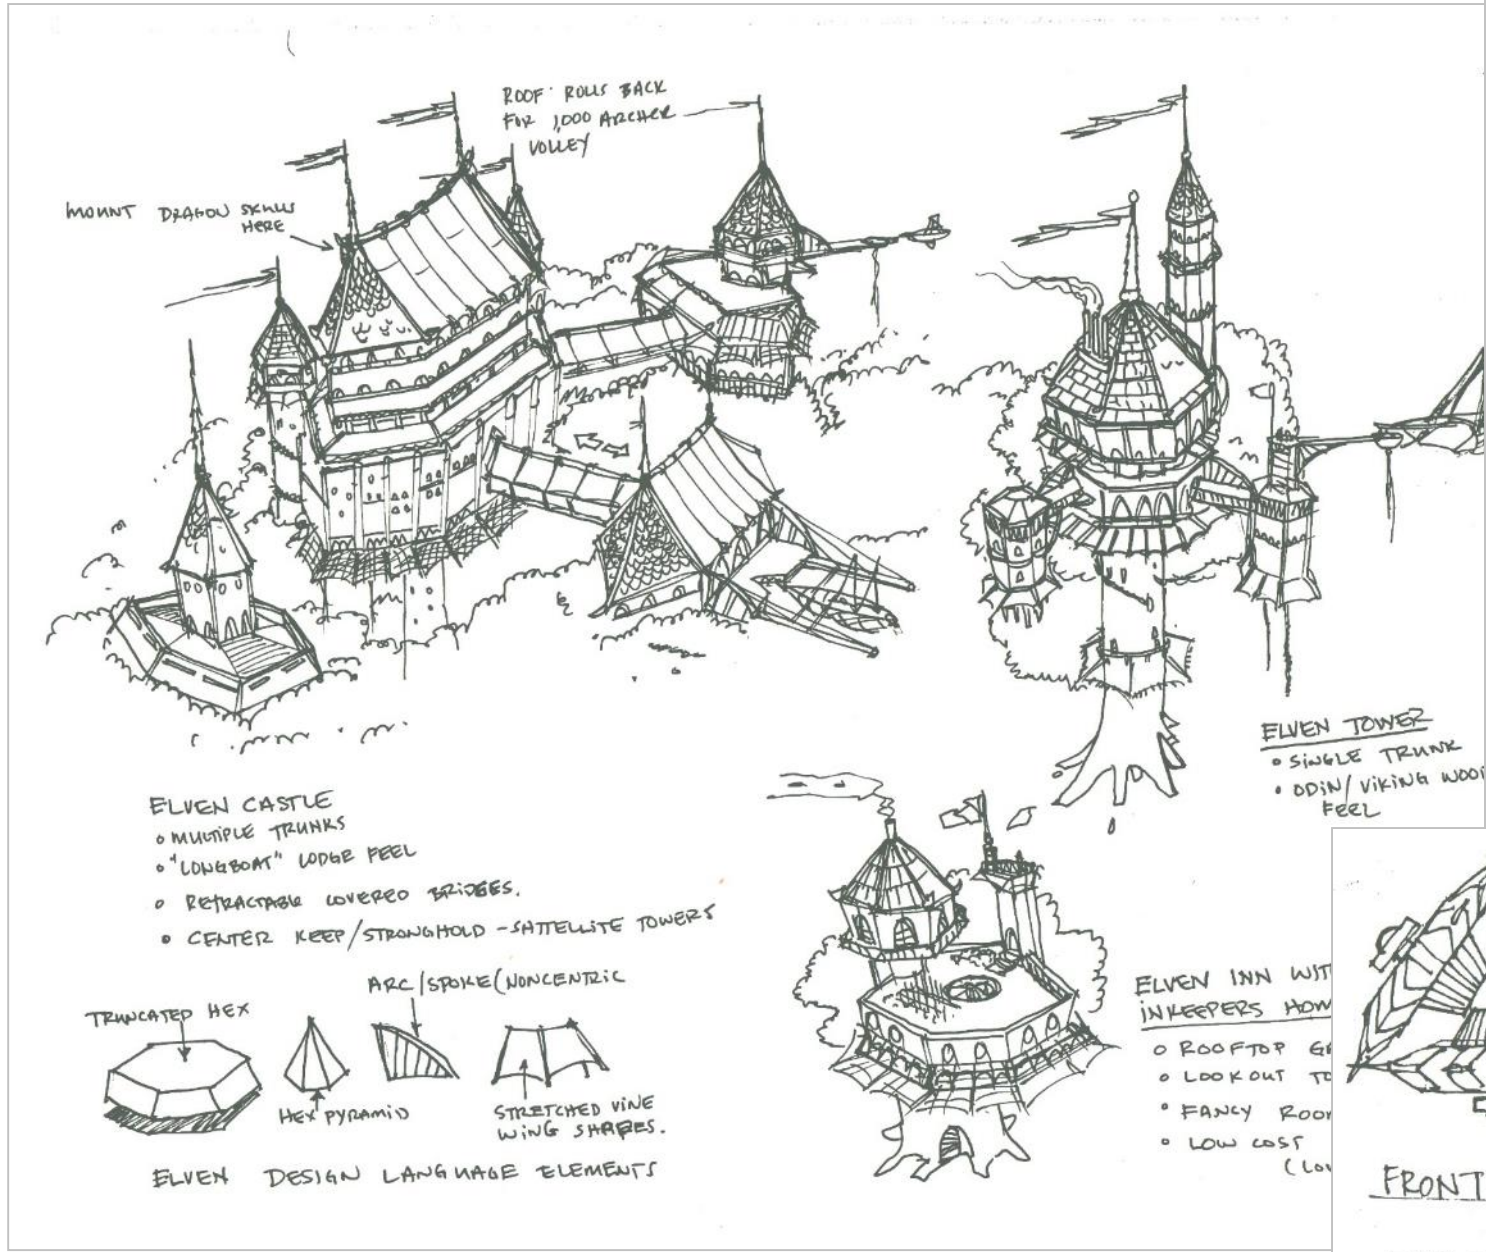 ROOF ROLLS BACK
FOR 1,000 ARCHER
VOLLEY
MOUNT DRAGON SKULLS
HERE
ELVEN TOWER
• SINGLE TRUNK
• ODIN/VIKING
FEEL
ELVEN CASTLE
• MULTIPLE TRUNKS
• "LONGBOAT" LODGE FEEL
• RETRACTABLE COVERED BRIDGES.
• CENTER KEEP/STRONGHOLD - SATTELLITE TOWERS
TRUNCATED HEX
ARC/SPOKE(NONCENTRIC
HEX PYRAMID
STRETCHED VINE
WING SHAPES.
ELVEN DESIGN LANGUAGE ELEMENTS
ELVEN INN
INKEEPERS
• ROOFTOP
• LOOKOUT
• FANCY
• LOW COST
FRONT